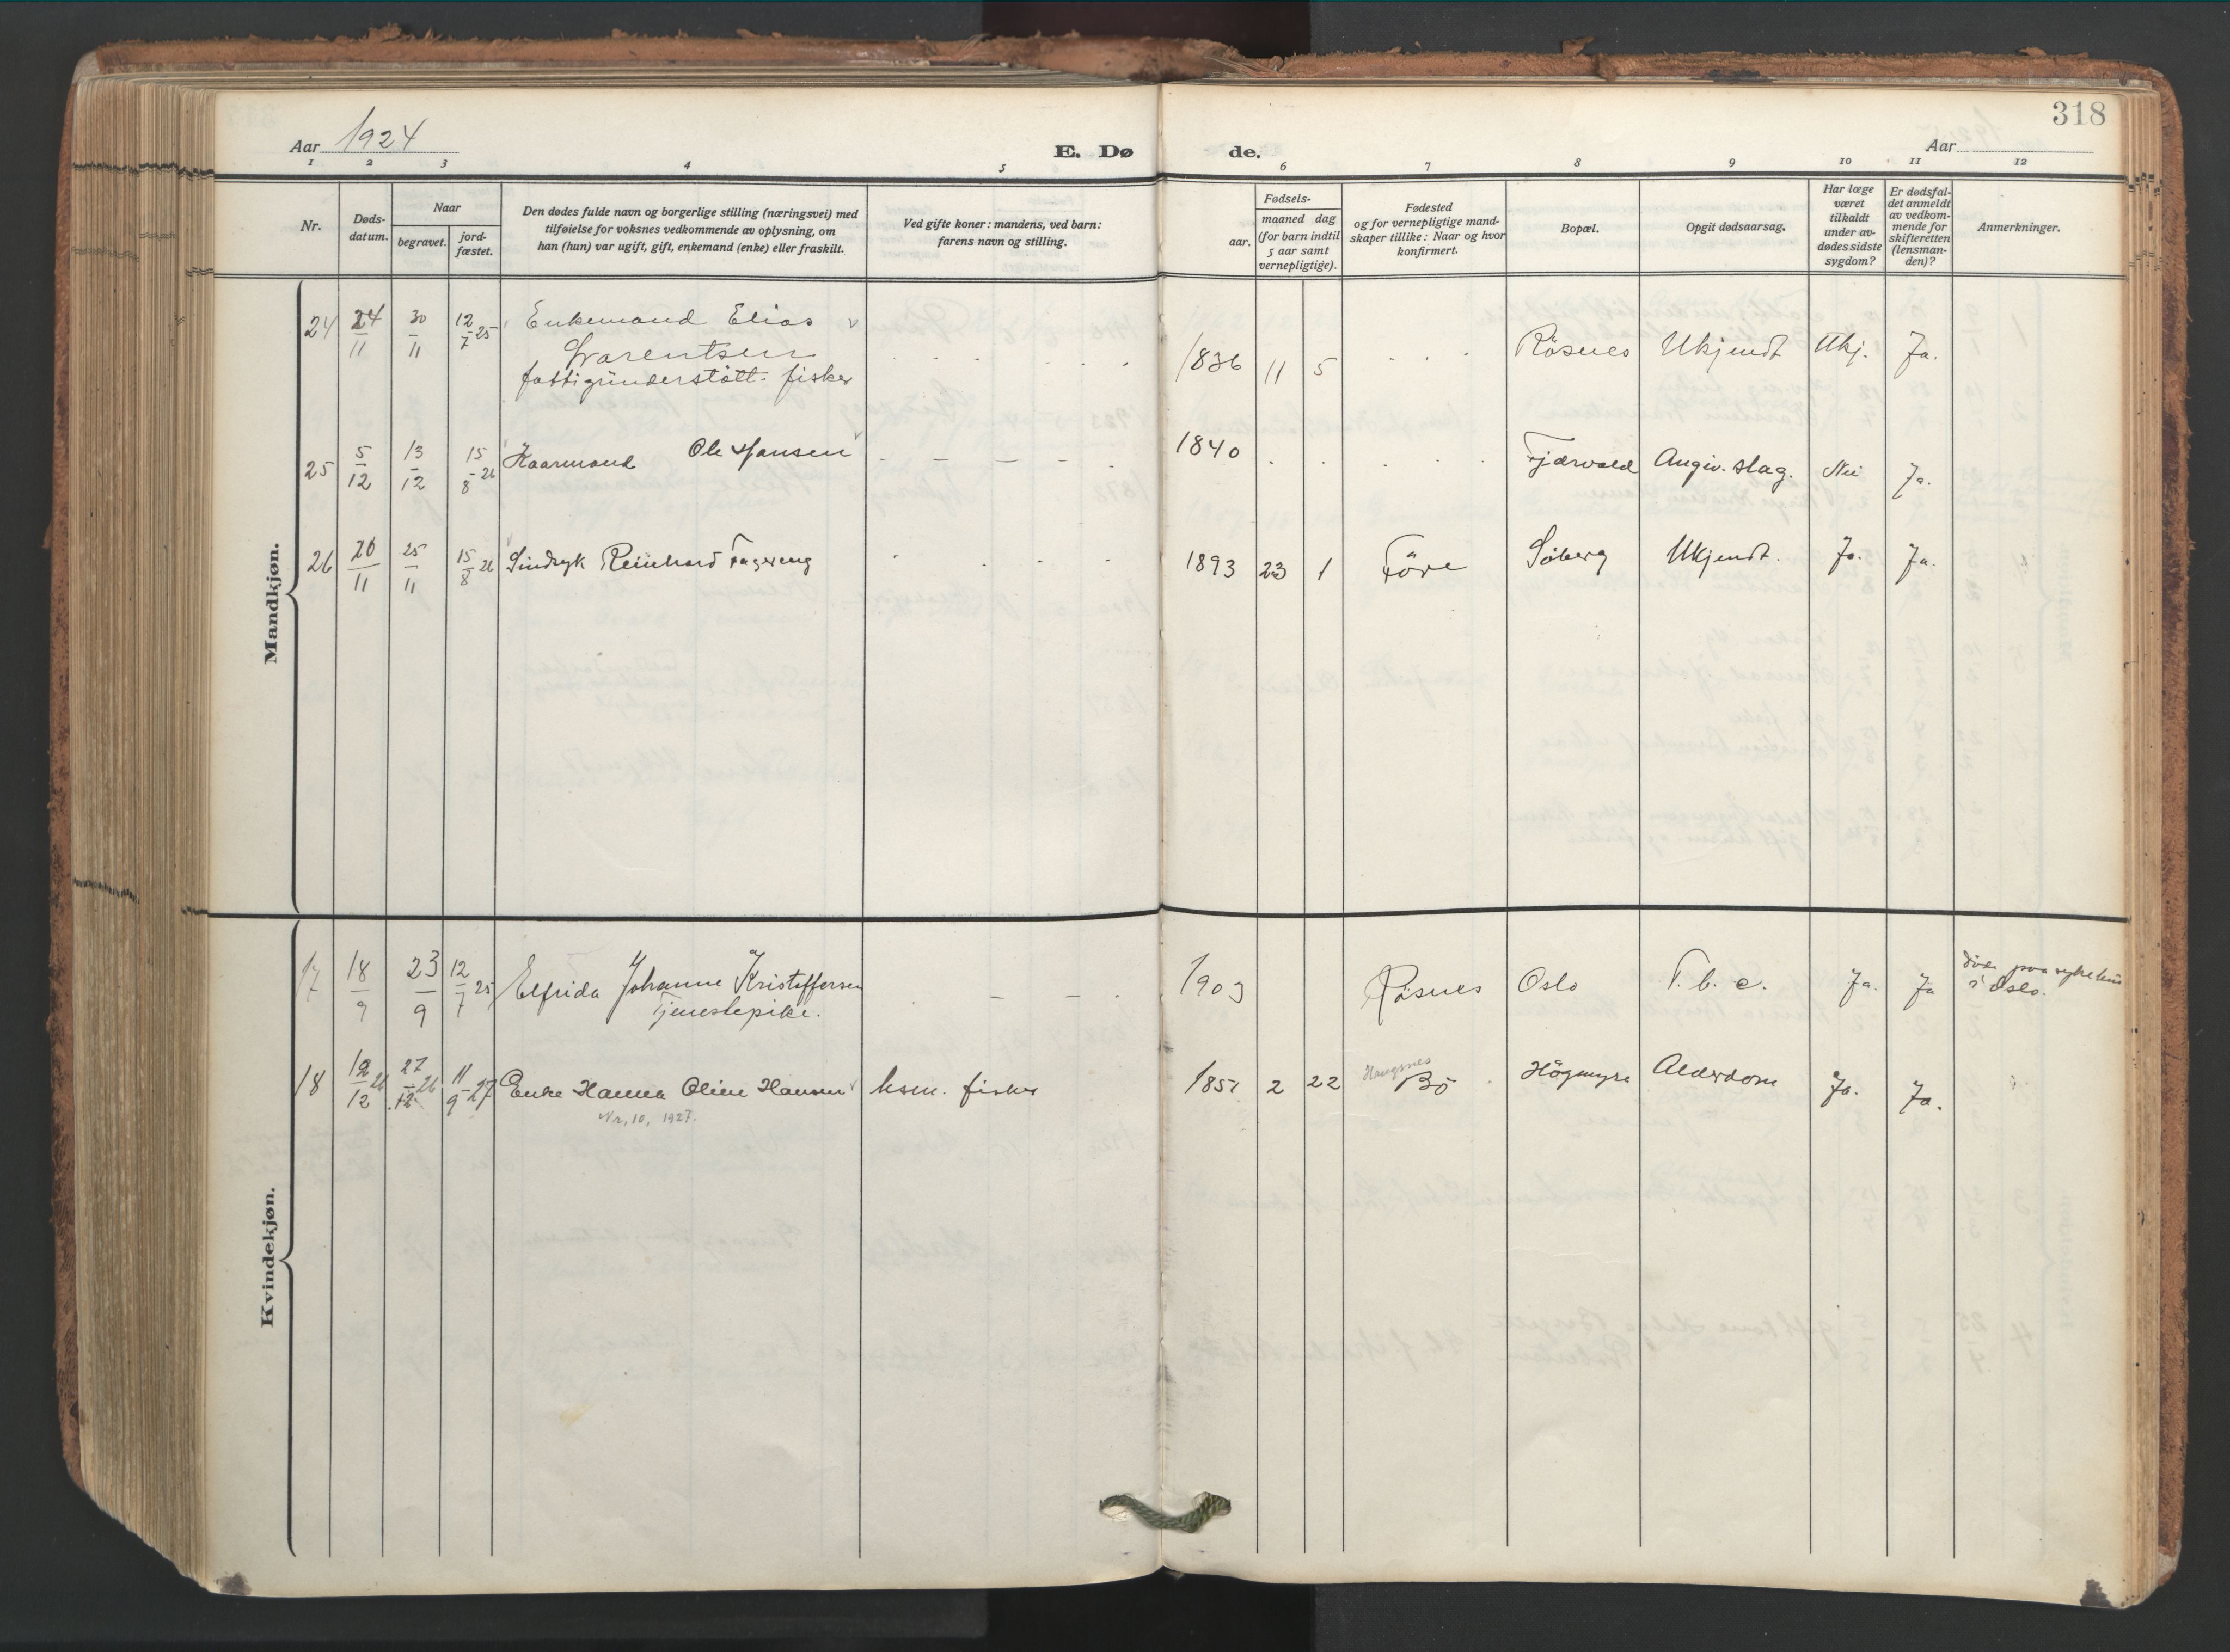 318
Aar 1924
E. Dø
de.
Aar
1 2 3 4 5 6 7 8 9 10 11 12
Nr.
Døds-
datum.
Naar
begravet.
jord-
fæstet.
Den dødes fulde navn og borgerlige stilling (næringsvei) med
tilføielse for voksnes vedkommende av oplysning, om
han (hun) var ugift, gift, enkemand (enke) eller fraskilt.
Ved gifte koner: mandens, ved barn:
farens navn og stilling.
Fødsels-
aar.
maaned dag
(for barn indtil
5 aar samt
vernepligtige).
Fødested
og for vernepligtige mand-
skaper tillike: Naar og hvor
konfirmert.
Bopæl.
Opgit dødsaarsag.
Har læge
været
tilkaldt
under av-
dødes sidste
sygdom?
Er dødsfal-
det anmeldt
av vedkom-
mende for
skifteretten
(lensman-
den)?
Anmerkninger.
Mandkjøn.
24 24/11 30/11 12/7 25 Enkemand Elias 1836 11 5 Røsnes Ukjendt Ukj. Ja.
fattigunderstøtt. fisker
25 5/12 13/12 15/8 26 Kaarmand Ole Hansen 1840 Fjærvold Angiv. slag. Nei Ja.
26 20/11 25/11 15/8 26 Sindsyk Reinhard Fagereng 1893 23 1 Føre Søberg Ukjendt. Ja. Ja.
Kvindekjøn.
17 18/9 23/9 12/7 25 Elfrida Johanne Kristoffersen 1903 Røsnes Oslo T.b.c. Ja. Ja døde paa sykehus
Tjenestepike. i Oslo.
18 12/12 26 27/12 26 11/9 27 Enke Hanna Oline Hansen ksm. fisker 1851 2 22 Haugsnes Bø Høgmyra Alderdom Ja. Ja.
Nr. 10, 1927.